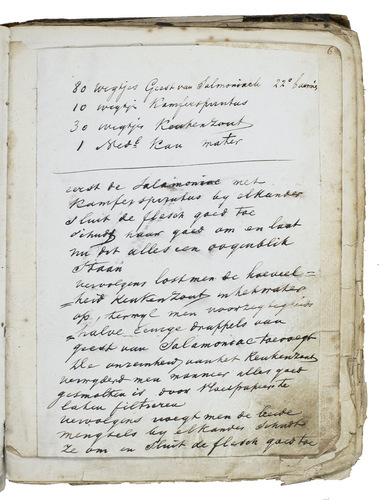 6
80 wigtjes Geest van Salmoniack 22°
10 wigtjes Kamferspiritus
30 wigtjes Keukenzout
1 Nedl Kan water
eerst de Salamoniac met
Kamferspiritus by elkander
Sluit de flesch goed toe
Schudt haar goed om en laat
nu dit alles een oogenblik
Staan
vervolgens lost men de hoeveel=
=heid Keukenzout in het water
op, terwyl men voorzigtigheids
halve Eenige druppels van
geest van Salamoniac toevoegt
De onzeinheid van het Keukenzout
verwyderd men wanneer alles goed
gesmolten is door Vloeipapier te
laten filtreren
vervolgens voegt men de beide
mengsels by elkander Schudt
ze om en Sluit de flesch goed toe